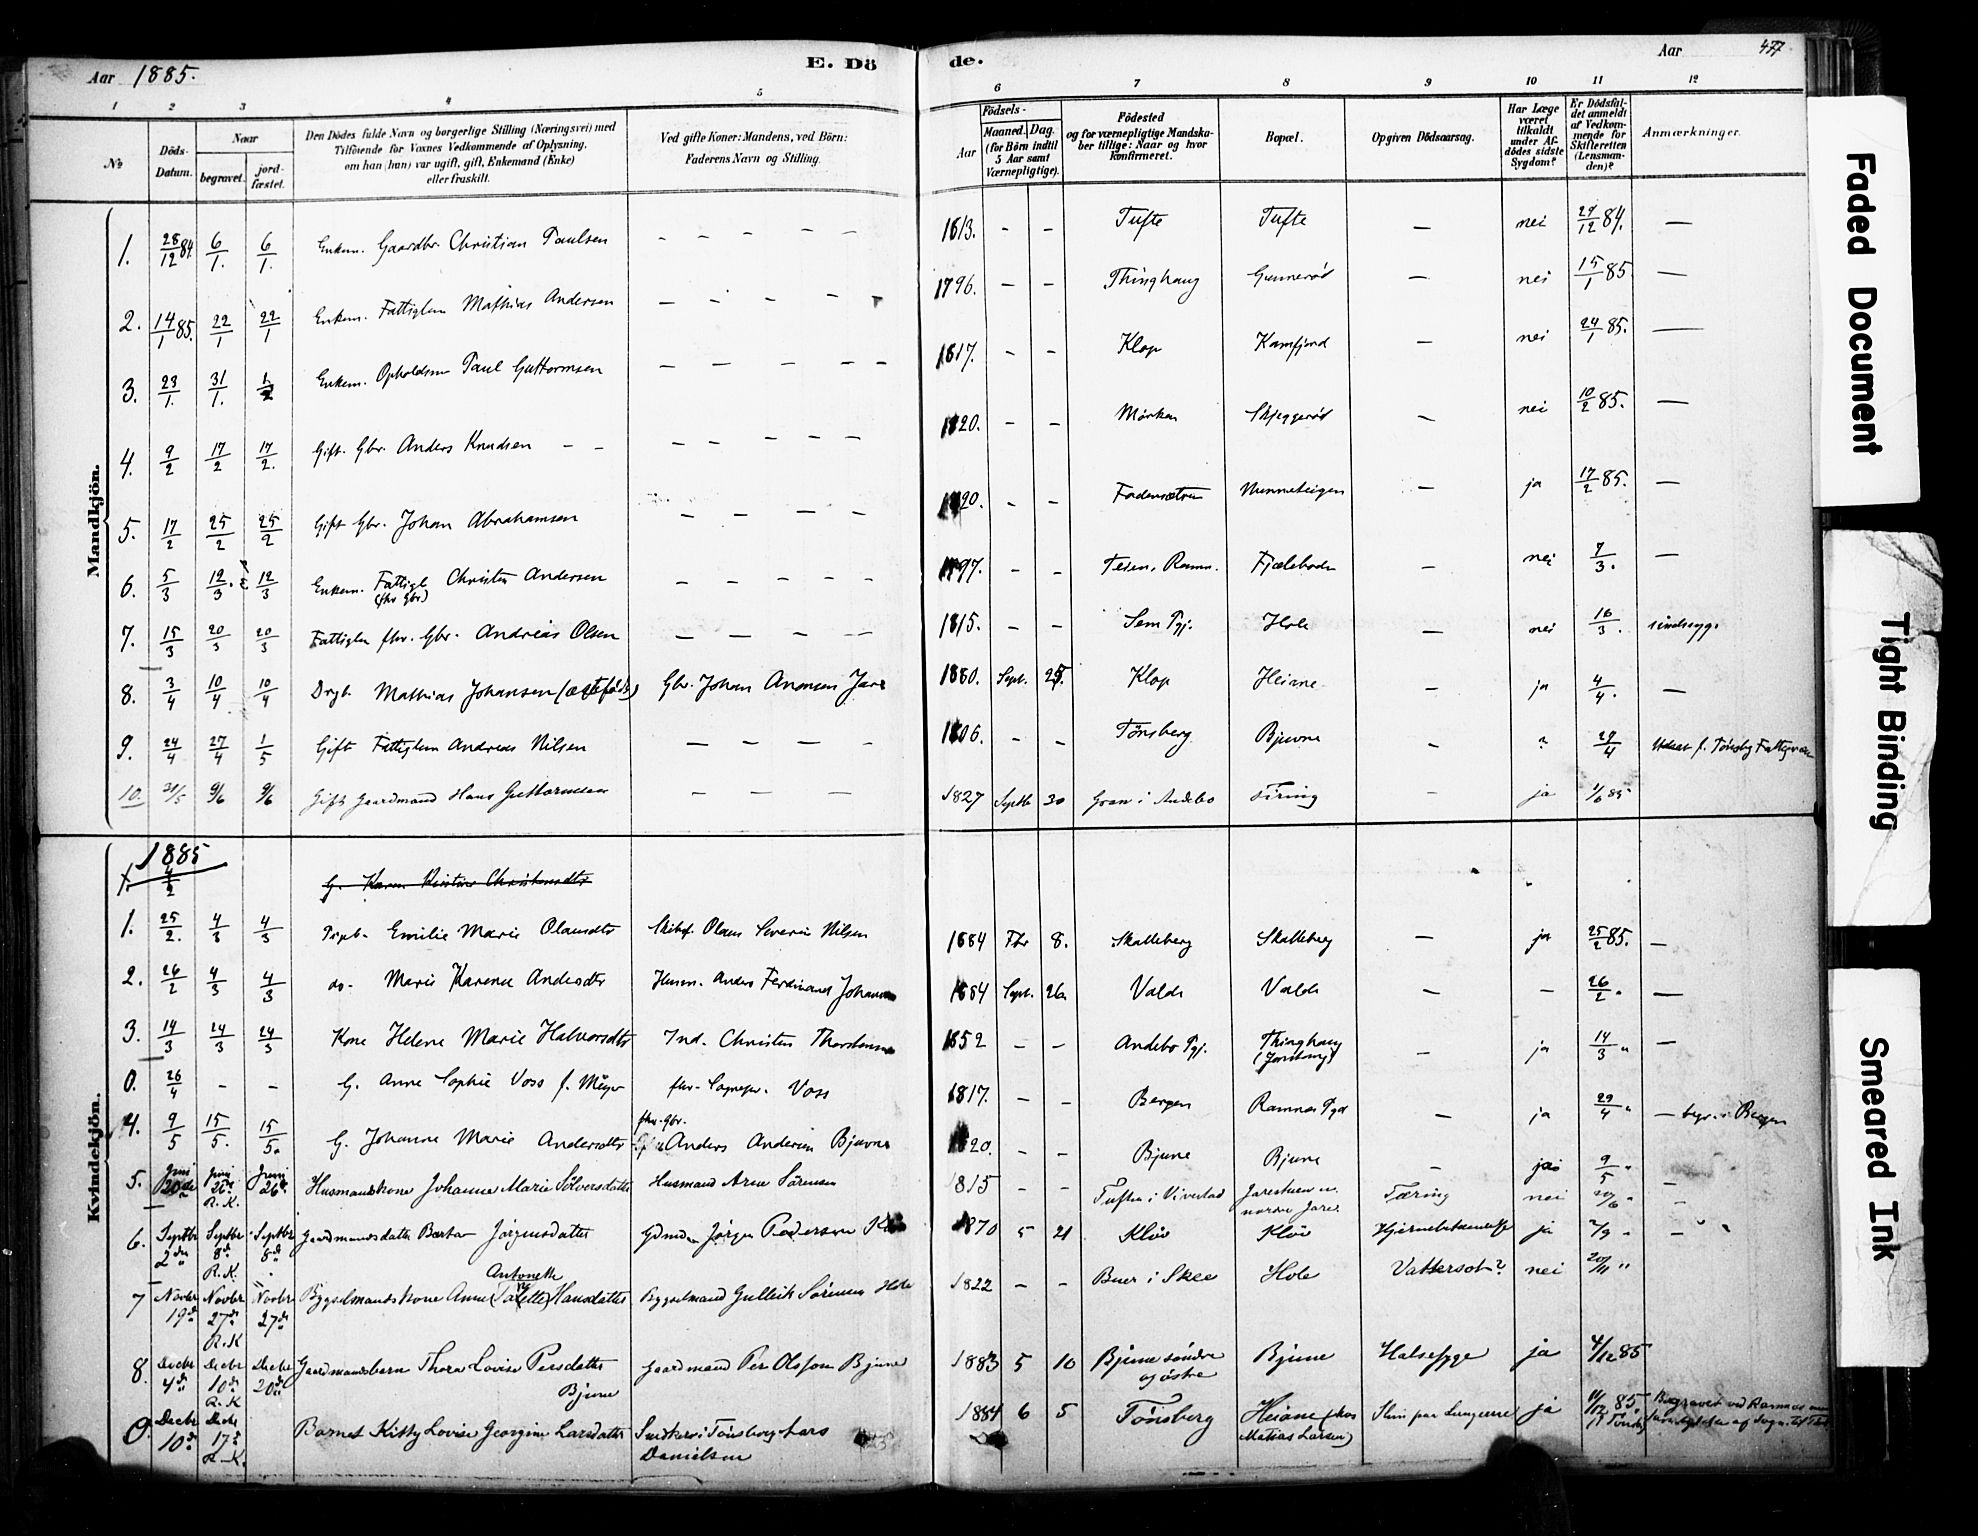 Aar 1885. E. Dö de. Aar 477
1 2 3 4 5 6 7 8 9 10 11 12
No
Döds-Datum.
Naar
begravet.
jord-fæstet.
Den Dödes fulde Navn og borgerlige Stilling (Næringsvei) med
Tilföiende for Voxnes Vedkommende af Oplysning,
om han (hun) var ugift, gift, Enkemand (Enke)
eller fraskilt.
Ved gifte Koner: Mandens, ved Börn:
Faderens Navn og Stilling.
Födsels-
Aar
Maaned. Dag.
(for Börn indtil
5 Aar samt
Værnepligtige).
Födested
og for værnepligtige Mandska-
ber tillige: Naar og hvor
konfirmeret.
Bopæl.
Opgiven Dödsaarsag.
Har Læge
været
tilkaldt
under Af-
dödes sidste
Sygdom?
Er Dödsfal-
det anmeldt
af Vedkom-
mende for
Skifteretten
(Lensman-
den)?
Anmærkninger.
Mandkjön.
1. 28/12 84. 6/1. 6/1. Enkem. Gaardbr. Christian Paulsen – – – – – 1813. – – Tufte Tufte – nei 29/12 84. –
2. 14/1 85. 22/1 22/1 Enkem. Fattiglem Mathias Andersen – – – – – 1796. – – Thinghaug Gunnerød – nei 15/1 85 –
3. 23/1. 31/1. 1/2 Enkem. Opholdsm Paul Guttormsen – – – – – 1817. – – Klop Kamfjord – nei 24/1 85. –
4. 9/2 17/2 17/2. Gift. Gbr. Anders Knudsen – – – – – – 1820. – – Mørken Skjeggerød – nei 10/2 85. –
5. 17/2 25/2 25/2 Gift Gbr. Johan Abrahamsen – – – – 1820. – – – ja 17/2 85. –
6. 5/3 12/3. 12/3 Enkem. Fattigl Christen Andersen – – – – 1797. – – Ramn. – nei 7/3. –
(fhv Gbr.)
7. 15/3 20/3 20/3 Fattiglm fhv. Gbr. Andreas Olsen – – – – 1815. – – Sem Pgj. Hole – nei 16/3. sindssyg.
8. 3/4 10/4 10/4 Mathias Johansen (ægtefødt) Gbr. Johan Jare 1880. Sept. 25. Klop Heiane – ja 4/4. –
9. 24/4 27/4 1/5 Gift Fattiglem Andreas Nilsen – – – – 1806. – – Tønsberg Bjuvne – ? 29/4
10. 31/5 9/6 9/6 Gift Gaardmand Hans Guttormsen – – – 1827 Septbr 30 Gran i Andebo Firing – ja 1/6 85 –
Kvindekjön.
1885
1. 4/2 G. Karen Kirstine Christensdtr
1. 25/2. 4/3 4/3 Emilie Marie Olausdtr Olaus Severin Nilsen 1884 Fbr 8. Skalleberg Skalleberg – ja 25/2 85. –
2. 26/2 4/3 4/3 do. Marie Karene Andersdtr Husm. Anders Ferdinand Johansen 1884 Sept. 26. Valde Valde – – 26/2. –
3. 14/3 24/3 24/3 Kone Helene Marie Halvorsdtr Ind. Christen 1852 – – Andebo Pgj. Thinghaug – ja 14/3 " –
0. 26/4 – – G. Anne Sophie Voss f. Meyer fhv. Sognepr. Voss 1817. – – Bergen Ramnes Pgd – ja 29/4 " – begr. i Bergen
4. 9/5 15/5. 15/5. G. Johanne Marie Andersdtr
fhv. Gbr.
Anders Andersen Bjuvne 1820. – – Bjune Bjune – ja 9/5 " –
5. Juni 20de Juni 26de R.K. Juni 26de Husmandskone Johanne Marie Sølversdatter Husmand Arne Sørensen 1815 – – Tuften i Vivestad
nordre Jare. Tæring nei 20/6 " –
6. Septbr 2den Septbr 8de R.K. Septbr 8de Gaardmandsdatter Berta Jørgensdatter Gdmd Jørgen Pedersen 1870 5 21 Kløv Kløv ja 2/9 " –
7 Novbr 19de Novbr 27de R.K Novbr 27de Bygselmandskone Anne Hansdatter
Antonette
Bygselmand Gullik Sørensen Hole 1822 – – Buer i Skee Hole Vattersot? nei 20/11 "
8. Decbr 4de Decbr 10de R.K Decbr 20de Gaardmandsbarn Thora Lovise Persdatter
Bjune
Gaardmand Per Olsson Bjune 1883 5 10 Bjune søndre
og østre
Bjune Halsesyge ja 4/12 85
0. Decbr 10de Decbr 17de R.K. Barnet Kitty Lovise Georgine Larsdatter Snedker i Tønsberg Lars
Danielsen
1884 6 5 Tønsberg Heiane (hos
Matias Larsen)
Slim paa Lungerne ja 11/12 85. Begravet ved Ramnes
Faded Document
Tight Binding
Smeared Ink